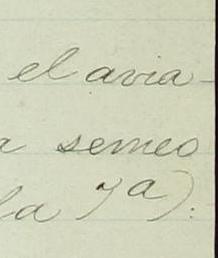 el avia-
a semeo
la 7a):